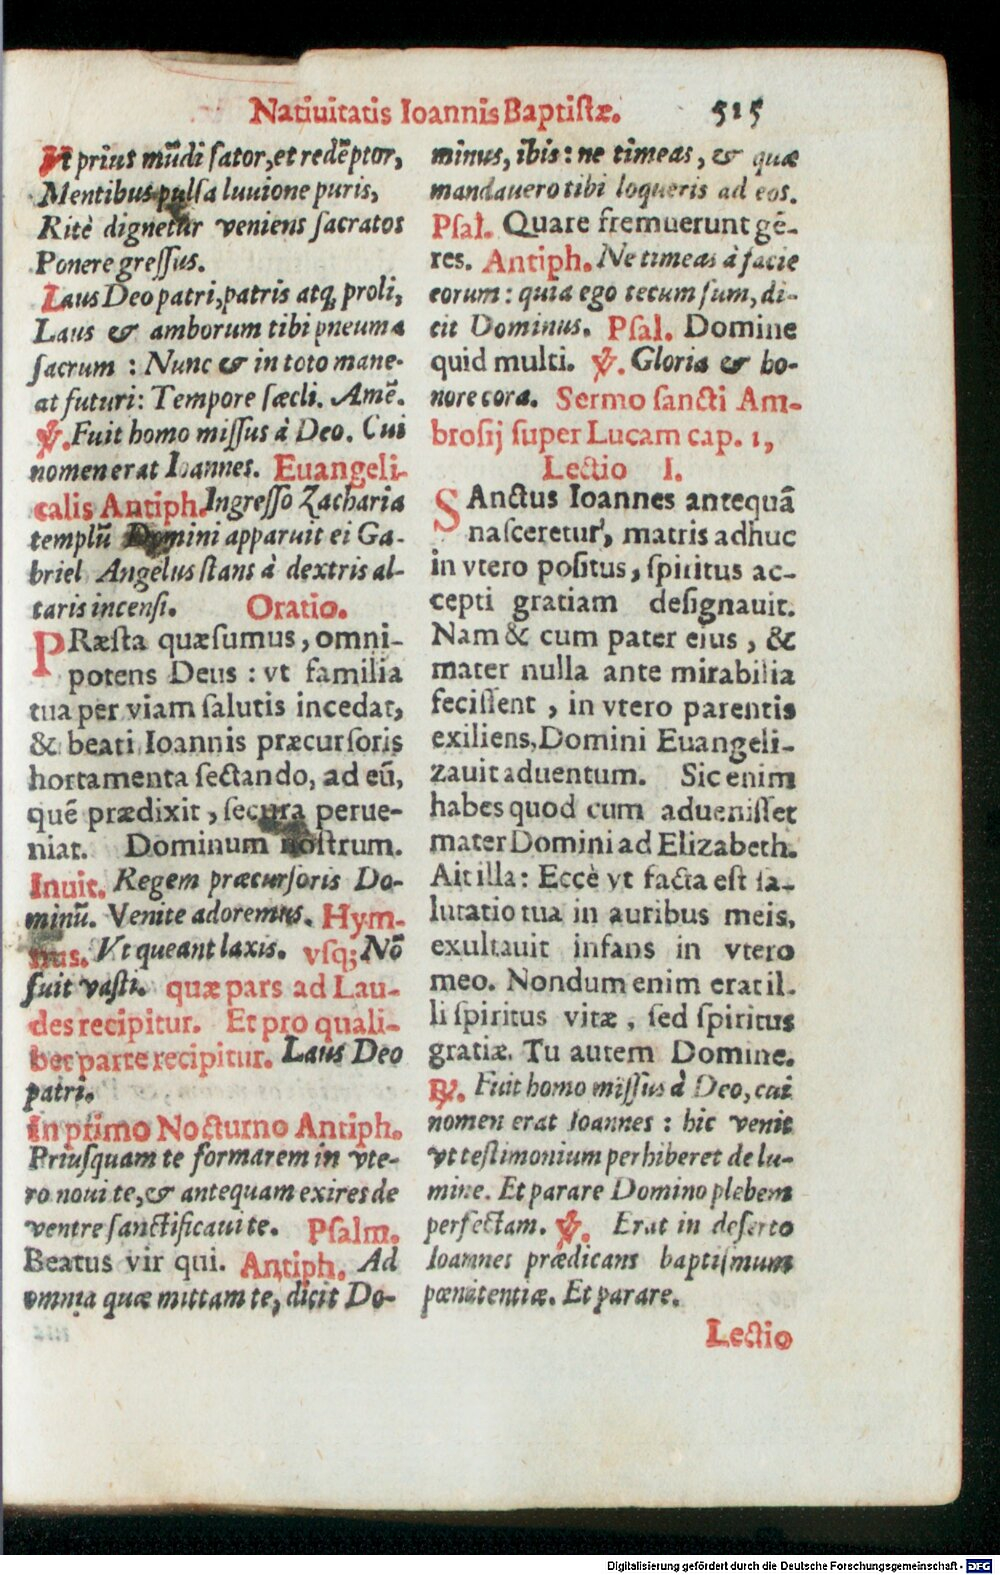 Natiuitatis Ioannis Baptistæ. 515
Vt prius mūdi sator, et redēptor,
Mentibus pulsa luuione puris,
Ritè dignetur veniens sacratos
Ponere gressus.
Laus Deo patri, patris atq; proli,
Laus & amborum tibi pneuma
sacrum : Nunc & in toto mane-
at futuri: Tempore sæcli. Amē.
℣. Fuit homo missus à Deo. Cui
nomen erat Ioannes. Euangeli-
calis Antiph. Ingresso Zacharia
templū Domini apparuit ei Ga-
briel Angelus stans à dextris al-
taris incensi. Oratio.
PRæsta quæsumus, omni-
potens Deus : vt familia
tua per viam salutis incedat,
& beati Ioannis præcursoris
hortamenta sectando, ad eū,
quē prædixit, secura perue-
niat. Dominum nostrum.
Inuit. Regem præcursoris Do-
minū. Venite adoremus. Hym-
nus. Vt queant laxis. vsq; Nō
fuit vasti. quæ pars ad Lau-
des recipitur. Et pro quali-
bet parte recipitur. Laus Deo
patri.
In primo Nocturno Antiph.
Priusquam te formarem in vte-
ro noui te, & antequam exires de
ventre sanctificaui te. Psalm.
Beatus vir qui. Antiph. Ad
omnia quæ mittam te, dicit Do-
minus, ibis : ne timeas, & quæ
mandauero tibi loqueris ad eos.
Psal. Quare fremuerunt gē-
res. Antiph. Ne timeas à facie
eorum : quia ego tecum sum, di-
cit Dominus. Psal. Domine
quid multi. ℣. Gloria & ho-
nore cora. Sermo sancti Am-
brosij super Lucam cap. 1,
Lectio I.
SAnctus Ioannes antequā
nasceretur, matris adhuc
in vtero positus, spiritus ac-
cepti gratiam designauit.
Nam & cum pater eius, &
mater nulla ante mirabilia
fecissent, in vtero parentis
exiliens, Domini Euangeli-
zauit aduentum. Sic enim
habes quod cum aduenisset
mater Domini ad Elizabeth.
Ait illa: Eccè vt facta est sa-
lutatio tua in auribus meis,
exultauit infans in vtero
meo. Nondum enim erat il-
li spiritus vitæ, sed spiritus
gratiæ. Tu autem Domine.
℟. Fuit homo missus à Deo, cui
nomen erat Ioannes : hic venit
vt testimonium perhiberet de lu-
mine. Et parare Domino plebem
perfectam. ℣. Erat in deserto
Ioannes prædicans baptismum
pœnitentiæ. Et parare.
Lectio
Digitalisierung gefördert durch die Deutsche Forschungsgemeinschaft - DFG